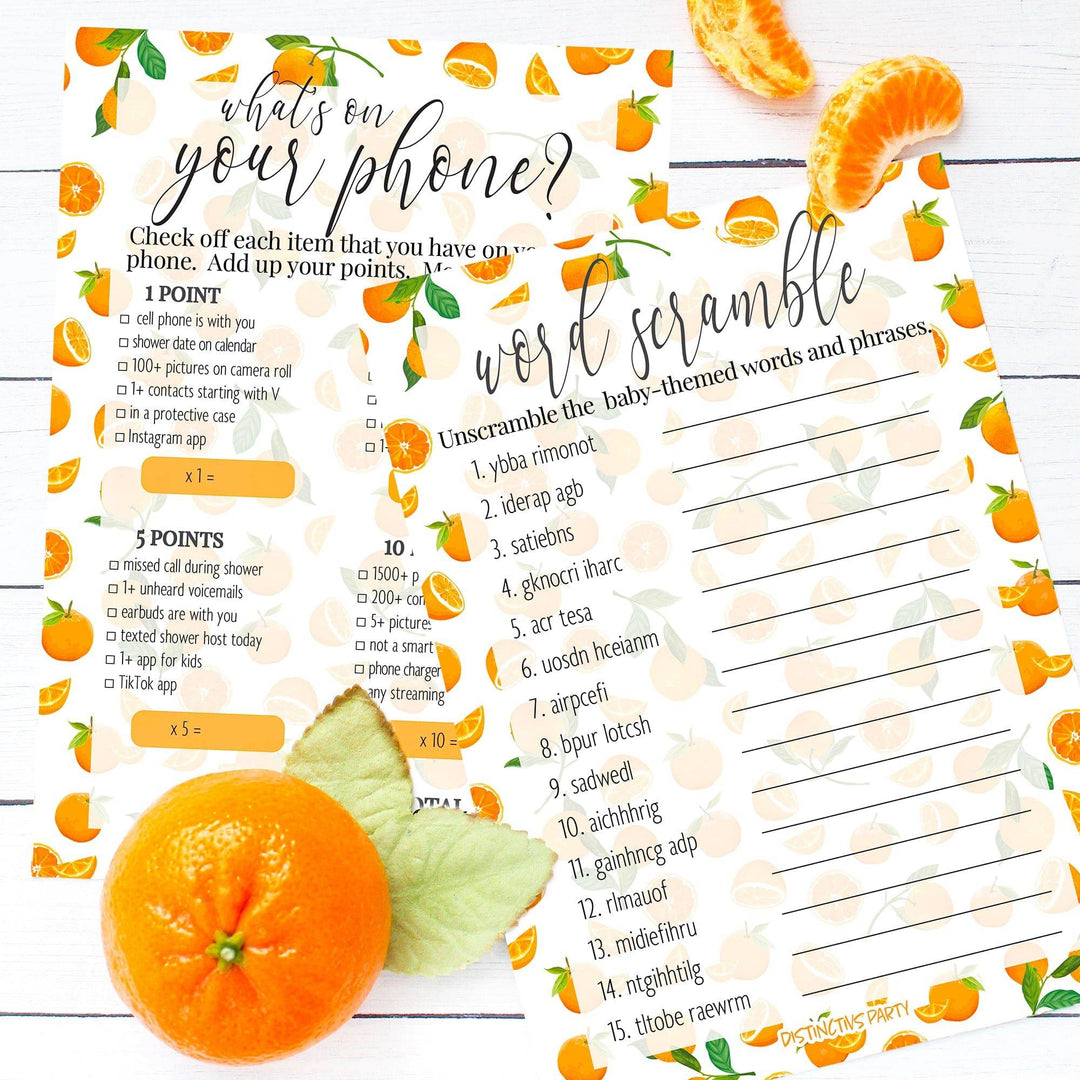 what's on
your phone?
Check off each item that you have on
phone. Add up your points.
1 POINT
cell phone is with you
shower date on calendar
100+ pictures on camera roll
1+ contacts starting with V
in a protective case
Instagram app
x 1 =
5 POINTS
missed call during shower
1+ unheard voicemails
earbuds are with you
texted shower host today
1+ app for kids
TikTok app
x 5 =
10
1500+ p
200+ con
5+ pictures
not a smart
phone charger
any streaming
x 10 =
word scramble
Unscramble the baby-themed words and phrases.
1. ybba rimonot
2. iderap agb
3. satiebns
4. gknocri iharc
5. acr tesa
6. uosdn hceianm
7. airpcefi
8. bpur lotcsh
9. sadwedl
10. aichhhrig
11. gainhncg adp
12. rlmauof
13. midiefihru
14. ntgihhtilg
15. tltobe raewrm
DISTINCTIVS PARTY